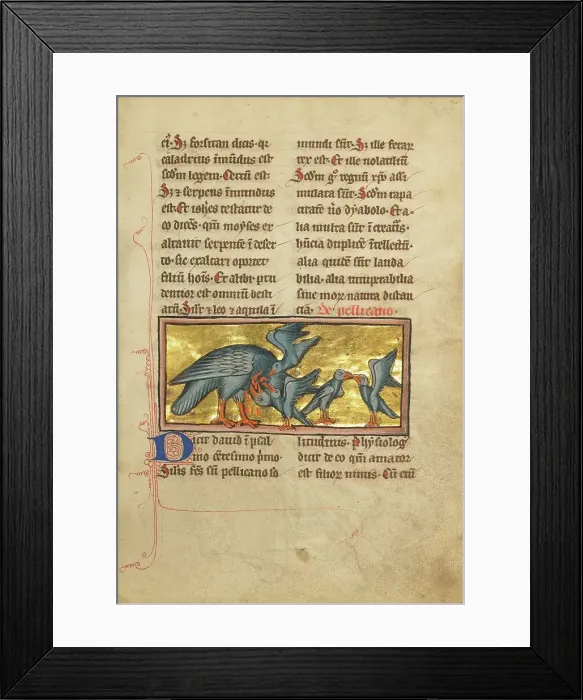 ei. Sz forsitan dicis. qr
caladrius inmūdus est
scdm legem. Certū est.
Sz ⁊ serpens inmundus
est. Et ioh̄es testatur de
eo dicēs. qm̄ moyses ex
altauit serpentē ī deser
to. sic exaltari oportet
filiū hoīs. Et alibi. pru
dentior est omniū besti
arū. Silr ⁊ leo ⁊ aquila ī
mundi sūt. Sz ille ferar
rex est. Et ille uolatiliū
Scdm gͦ regnū xp̄o assi
mulata sūt. Scdm rapa
citatē uͦo dyabolo. Et a
lia multa sūt ī creatis.
hn̄cia duplicē ītellectū.
alia quidē sūt lauda
bilia. alia uituperabilia
siue mox natura distan
cia. De pellicano.
Dicit dauid ī psal
mo cētesimo pͥmo.
Silis fcs sū pellicano so
litudinis. Physiolog
dicit de eo qm̄ amator
est filior nimis. Cū enī